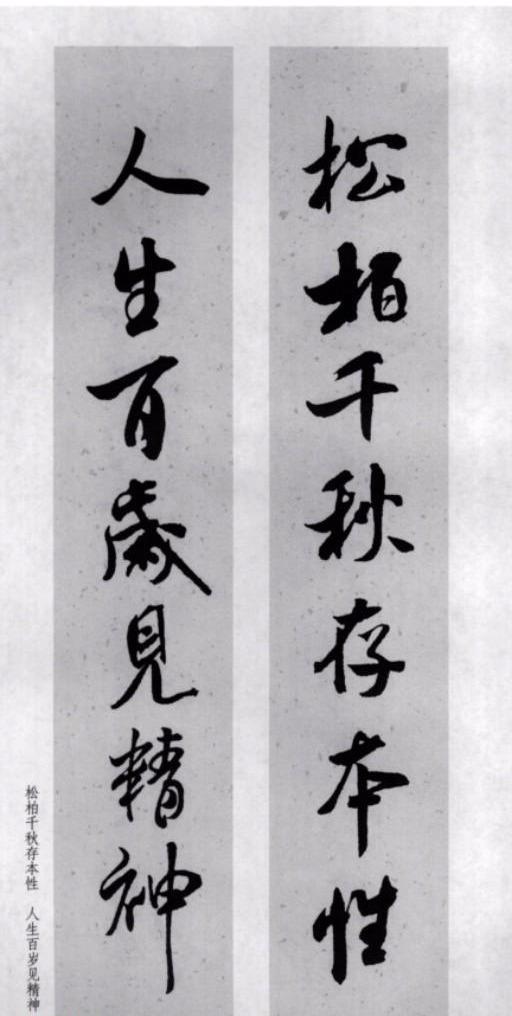 松柏千秋存本性
人生百歲見精神
松柏千秋存本性 人生百岁见精神